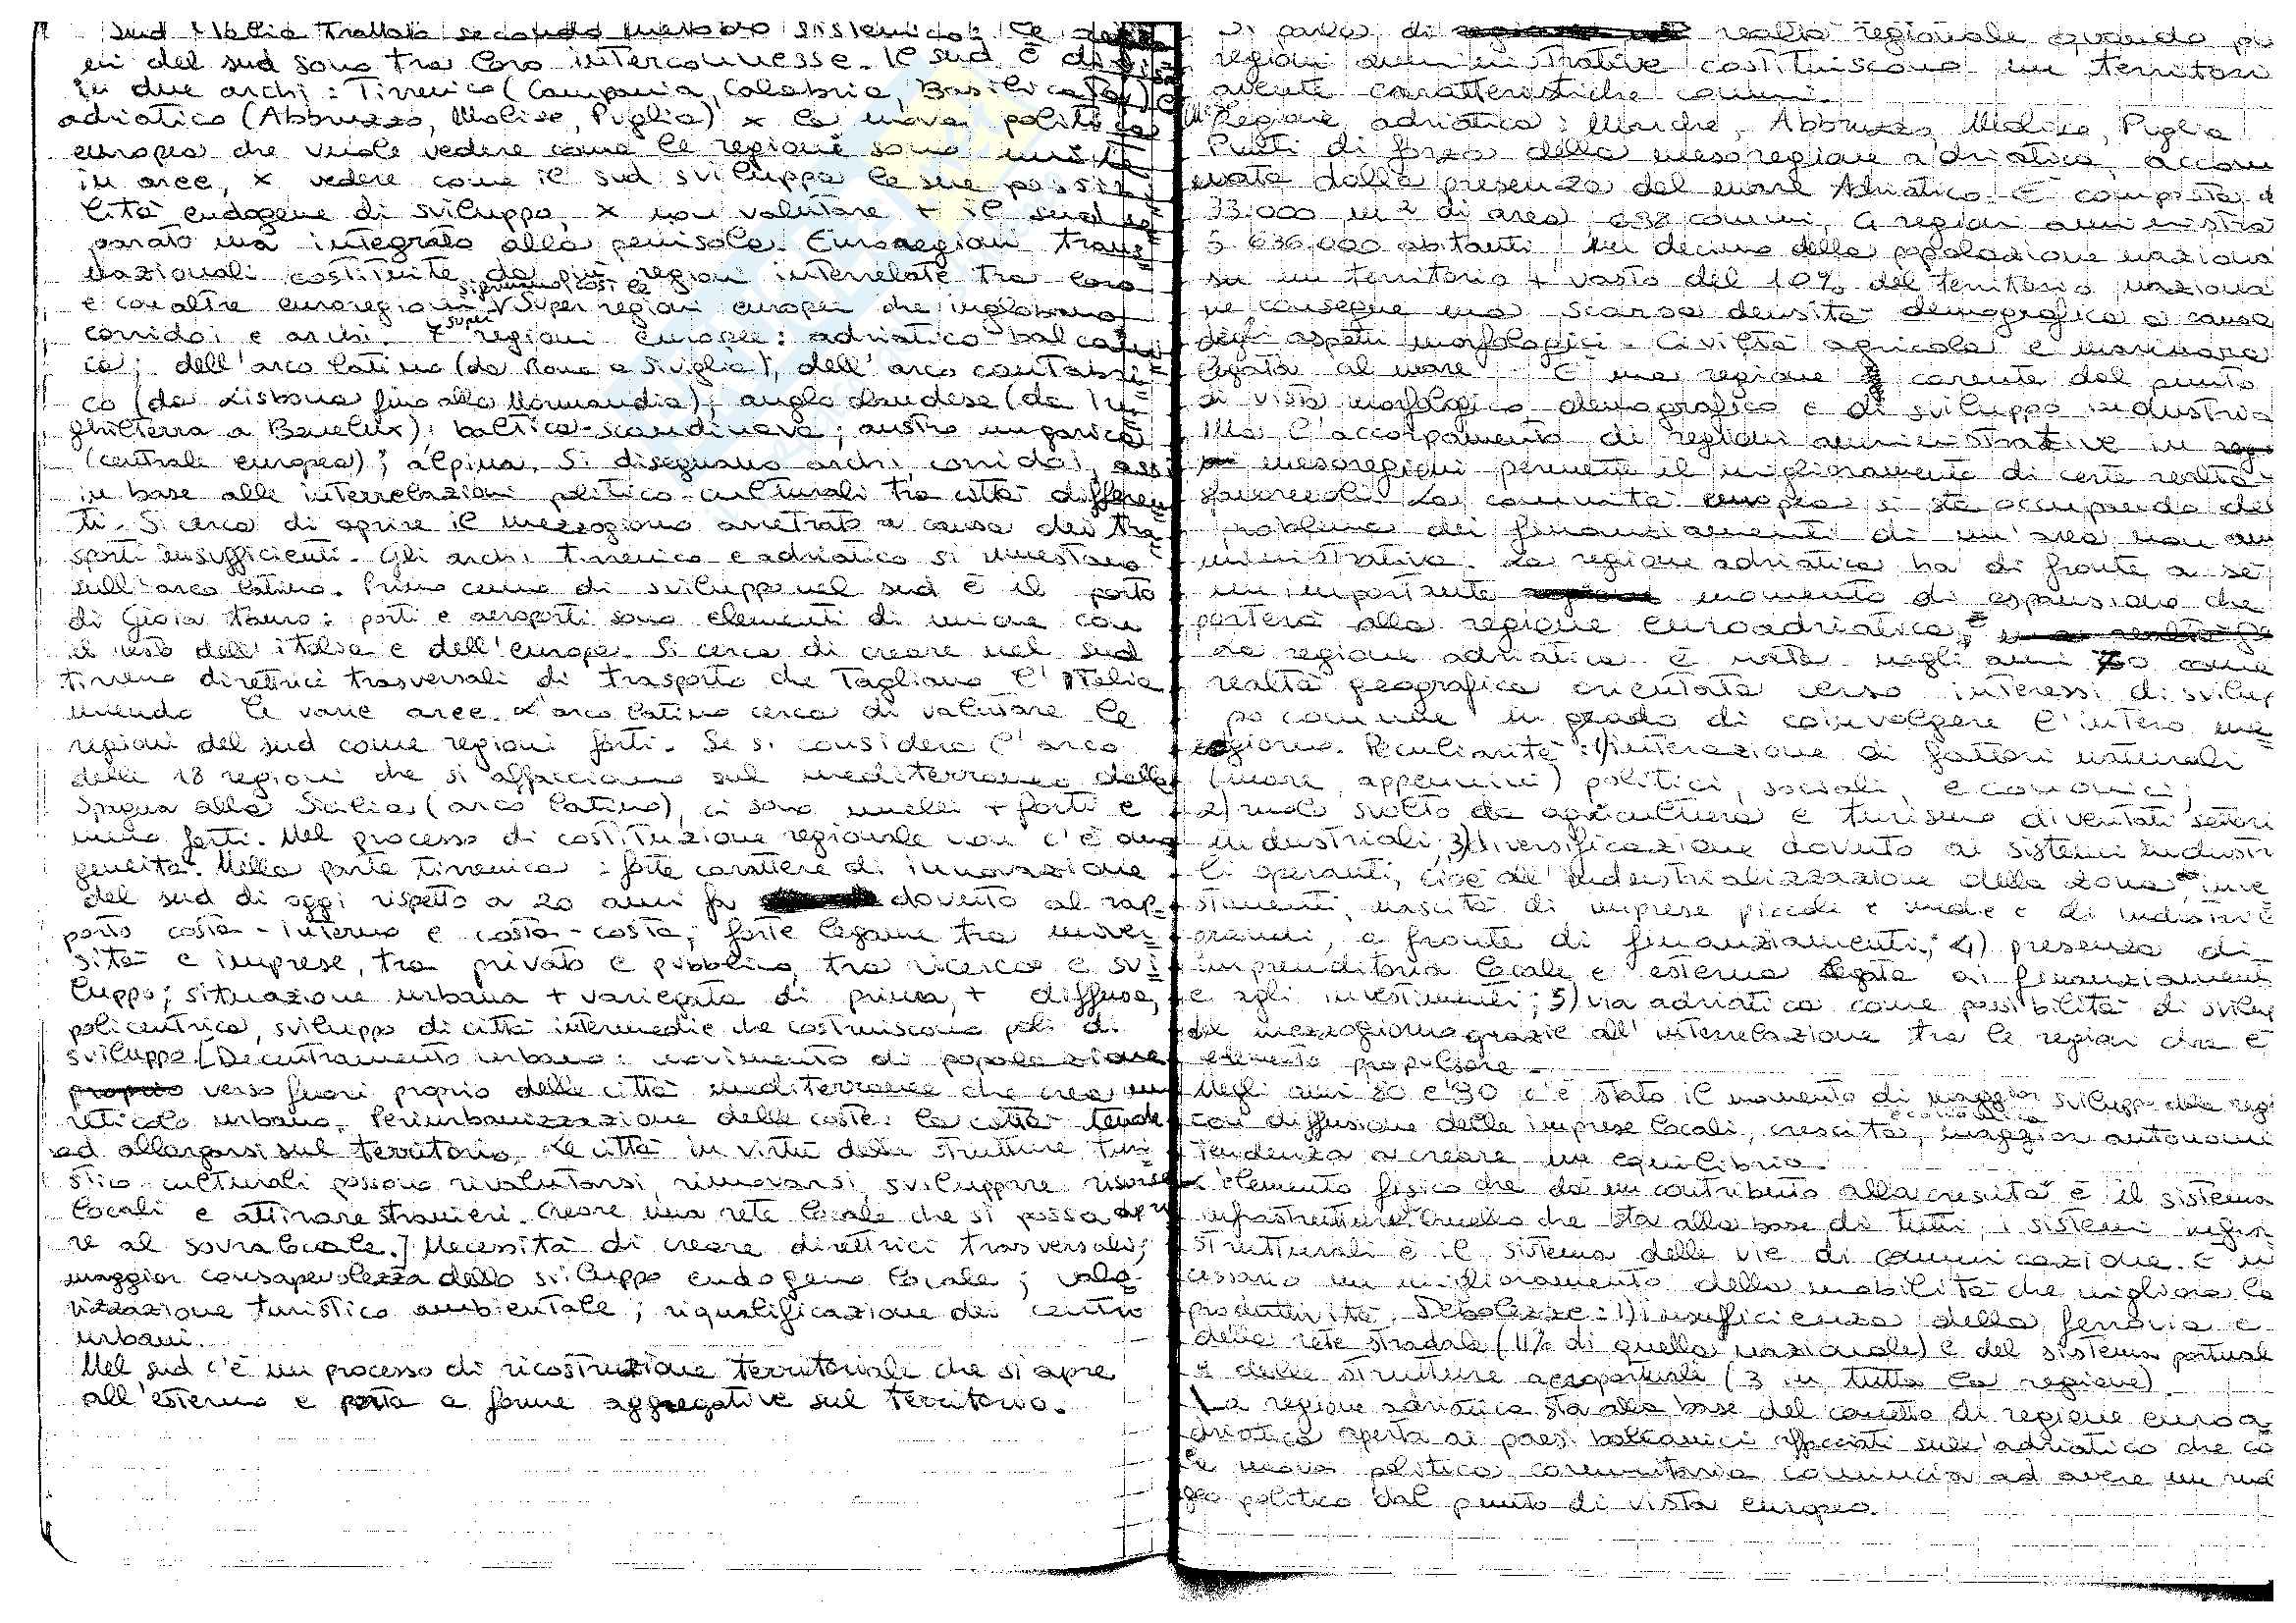 Sud Italia trattato secondo metodo sistemico: le
ni del sud sono tra loro interconnesse. Il sud è di
in due archi: Tirrenico (Campania, Calabria, Basilicata) e
adriatico (Abbruzzo, Molise, Puglia) x la nuova politica
europea che vuole vedere come le regioni sono unite
in aree, x vedere come il sud sviluppa le sue possibi
lità endogene di sviluppo, x non valutare + il sud se=
parato ma integrato alla penisola. Euroregioni trans=
nazionali costituite da più regioni interrelate tra loro
e con altre euroregioni si formano così le Super regioni europee che inglobano
corridoi e archi. 7 super regioni europee: adriatico-balcani
ca; dell'arco latino (da Roma a Siviglia); dell'arco cantabri=
co (da Lisbona fino alla Normandia); anglo olandese (da In=
ghilterra a Benelux); baltico-scandinava; austro ungarica
(centrale europea); alpina. Si disegnano archi, corridoi, assi
in base alle interrelazioni politico-culturali tra città differen
ti. Si cerca di aprire il mezzogiorno arretrato a causa dei tra=
sporti insufficienti. Gli archi tirrenico e adriatico si innestano
sull'arco latino. Primo cenno di sviluppo nel sud è il porto
di Gioia Tauro: porti e aeroporti sono elementi di unione con
il resto dell'italia e dell'europa. Si cerca di creare nel sud
tirreno direttrici trasversali di trasporto che tagliano l'Italia
unendo le varie aree. L'arco latino cerca di valutare le
regioni del sud come regioni forti. Se si considera l'arco
delle 18 regioni che si affacciano sul mediterraneo dalla
Spagna alla Sicilia (arco latino), ci sono anelli + forti e
meno forti. Nel processo di costituzione regionale non c'è omo
geneità. Nella parte tirrenica: forte carattere di innovazione
del sud di oggi rispetto a 20 anni fa dovuto al rap-
porto costa-interno e costa-costa; forte legame tra univer-
sità e imprese, tra privato e pubblico, tra ricerca e svi=
luppo; situazione urbana + variegata di prima, + diffusa,
policentrica, sviluppo di città intermedie che costruiscono poli di
sviluppo. [Decentramento urbano: movimento di popolazione
verso fuori proprio delle città mediterranee che crea un
reticolo urbano. Periurbanizzazione delle coste: la città tende
ad allargarsi sul territorio. Le città in virtù delle strutture turi=
stico-culturali possono rivalutarsi, rinnovarsi, sviluppare risorse
locali e attirare stranieri. Creare una rete locale che si possa apri
re al sovralocale.] Necessità di creare direttrici trasversali;
maggior consapevolezza dello sviluppo endogeno locale; valo-
rizzazione turistico ambientale; riqualificazione dei centri
urbani.
Nel sud c'è un processo di ricostruzione territoriale che si apre
all'esterno e porta a forme aggregative sul territorio.
Si parla di realtà regionale quando più
regioni amministrative costituiscono un territori
avente caratteristiche comuni.
Regione adriatica: Marche, Abbruzzo, Molise, Puglia.
Punti di forza della mesoregione adriatica, accom
unata dalla presenza del mare Adriatico. È composta d
33.000 m2 di area 698 comuni, 4 regioni amministra
5.636.000 abitanti, un decimo della popolazione naziona
su un territorio + vasto del 10% del territorio naziona
ne consegue una scarsa densità demografica a causa
degli aspetti morfologici. Civiltà agricola e marinara
legata al mare. È una regione carente dal punto
di vista morfologico demografico e di sviluppo industria
Ma l'accorpamento di regioni amministrative in
mesoregioni permette il miglioramento di certe realtà
sfavorevoli. La comunità europea si sta occupando del
problema dei finanziamenti di un'area non am
ministrativa. La regione adriatica ha di fronte a sé
un importante momento di espansione che
porterà alla regione euroadriatica.
La regione adriatica è nata negli anni 70 come
realtà geografica orientata verso interessi di svilup
po comune in grado di coinvolgere l'intero me=
zzogiorno. Peculiarità: 1) interazione di fattori naturali
(mare, appennini) politici, sociali, economici;
2) ruolo svolto da agricoltura e turismo diventati settori
industriali; 3) diversificazione dovuto ai sistemi industri
li operanti, cioè all'industrializzazione della zona inve
stimenti, nascita di imprese piccole e medie e di industrie
grandi, a fronte di finanziamenti; 4) presenza di
imprenditoria locale e esterna legata ai finanziamenti
e agli investimenti; 5) via adriatica come possibilità di svilup
del mezzogiorno grazie all'interrelazione tra le regioni che è
elemento propulsore.
Negli anni '80 e '90 c'è stato il momento di maggior sviluppo della regi
con diffusione delle imprese locali, crescita economica, maggior autonomi
tendenza a creare un equilibrio.
L'elemento fisico che dà un contributo alla crescita è il sistema
infrastrutture. Quello che sta alla base di tutti i sistemi infra
strutturali è il sistema delle vie di comunicazione. È ne
cessario un miglioramento della mobilità che migliora la
produttività. Debolezze: 1) insufficienza della ferrovia e
della rete stradale (11% di quella nazionale) e del sistema portuale
e delle strutture aeroportuali (3 in tutta la regione).
La regione adriatica sta alla base del concetto di regione euroa
driatica aperta ai paesi balcanici affacciati sull'adriatico che co
la nuova politica comunitaria comincia ad avere un ruo
politico dal punto di vista europeo.